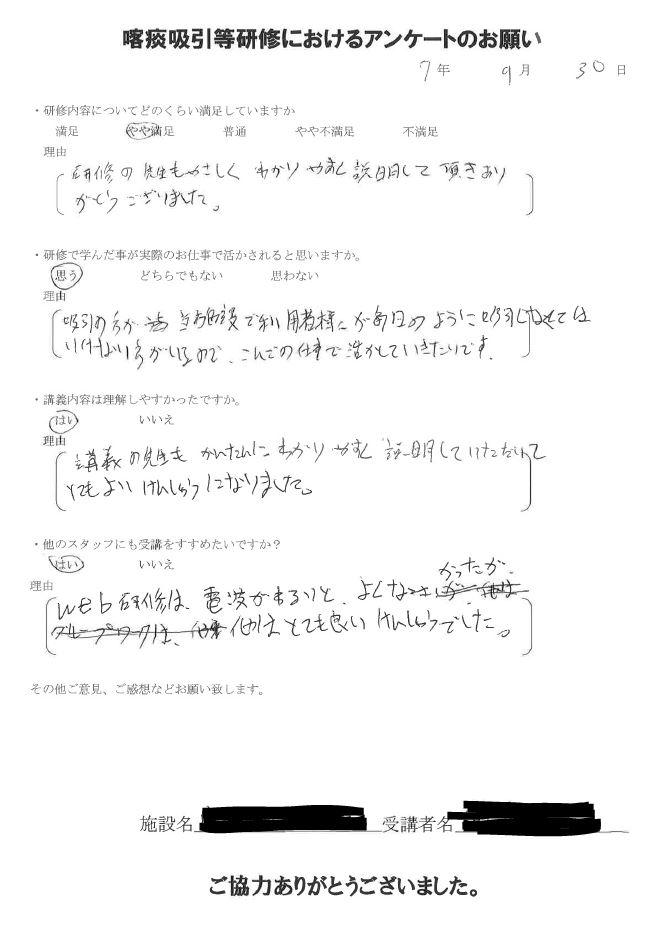 喀痰吸引等研修におけるアンケートのお願い
7年 9月 30日
・研修内容についてどのくらい満足していますか
満足 やや満足 普通 やや不満足 不満足
理由
研修の先生もやさしく わかりやすく説明して頂きあり
がとうございました。
・研修で学んだ事が実際のお仕事で活かされると思いますか。
思う どちらでもない 思わない
理由
吸引の方が 当施設で利用者様にが毎日のように吸引しなくては
いけない方がいるので、こんごの仕事で活かしていきたいです。
・講義内容は理解しやすかったですか。
はい いいえ
理由
講義の先生も かんたんに わかりやすく 説明していただいて
とてもよい けんしゅうになりました。
・他のスタッフにも受講をすすめたいですか？
はい いいえ
理由
かったが、
Web研修は、電波がわるいと、よくな
他はとても良い けんしゅうでした。
その他ご意見、ご感想などお願い致します。
施設名 受講者名
ご協力ありがとうございました。